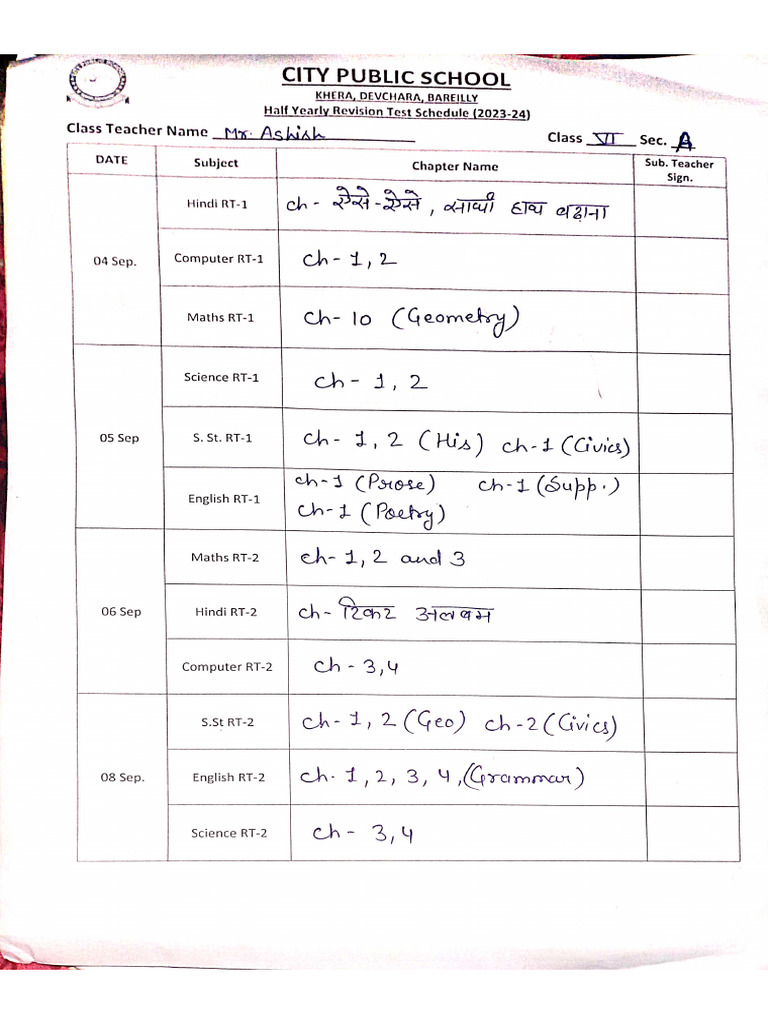 CITY PUBLIC SCHOOL
CITY PUBLIC SCHOOL
KHERA, DEVCHARA, BAREILLY
Half Yearly Revision Test Schedule (2023-24)
Class Teacher Name Mr. Ashish Class VI Sec. A
DATE Subject Chapter Name Sub. Teacher Sign.
04 Sep.
Hindi RT-1 ch - ऐसे-ऐसे, साथी हाथ बढ़ाना
Computer RT-1 Ch- 1, 2
Maths RT-1 Ch- 10 (Geometry)
05 Sep
Science RT-1 Ch - 1, 2
S. St. RT-1 Ch - 1, 2 (His) ch-1 (Civics)
English RT-1 Ch-1 (Prose) Ch-1 (Supp.)
Ch-1 (Poetry)
06 Sep
Maths RT-2 Ch- 1, 2 and 3
Hindi RT-2 ch- टिकट अलबम
Computer RT-2 Ch - 3,4
08 Sep.
S.St RT-2 Ch- 1, 2 (Geo) Ch-2 (Civics)
English RT-2 Ch. 1, 2, 3, 4, (Grammar)
Science RT-2 Ch - 3,4